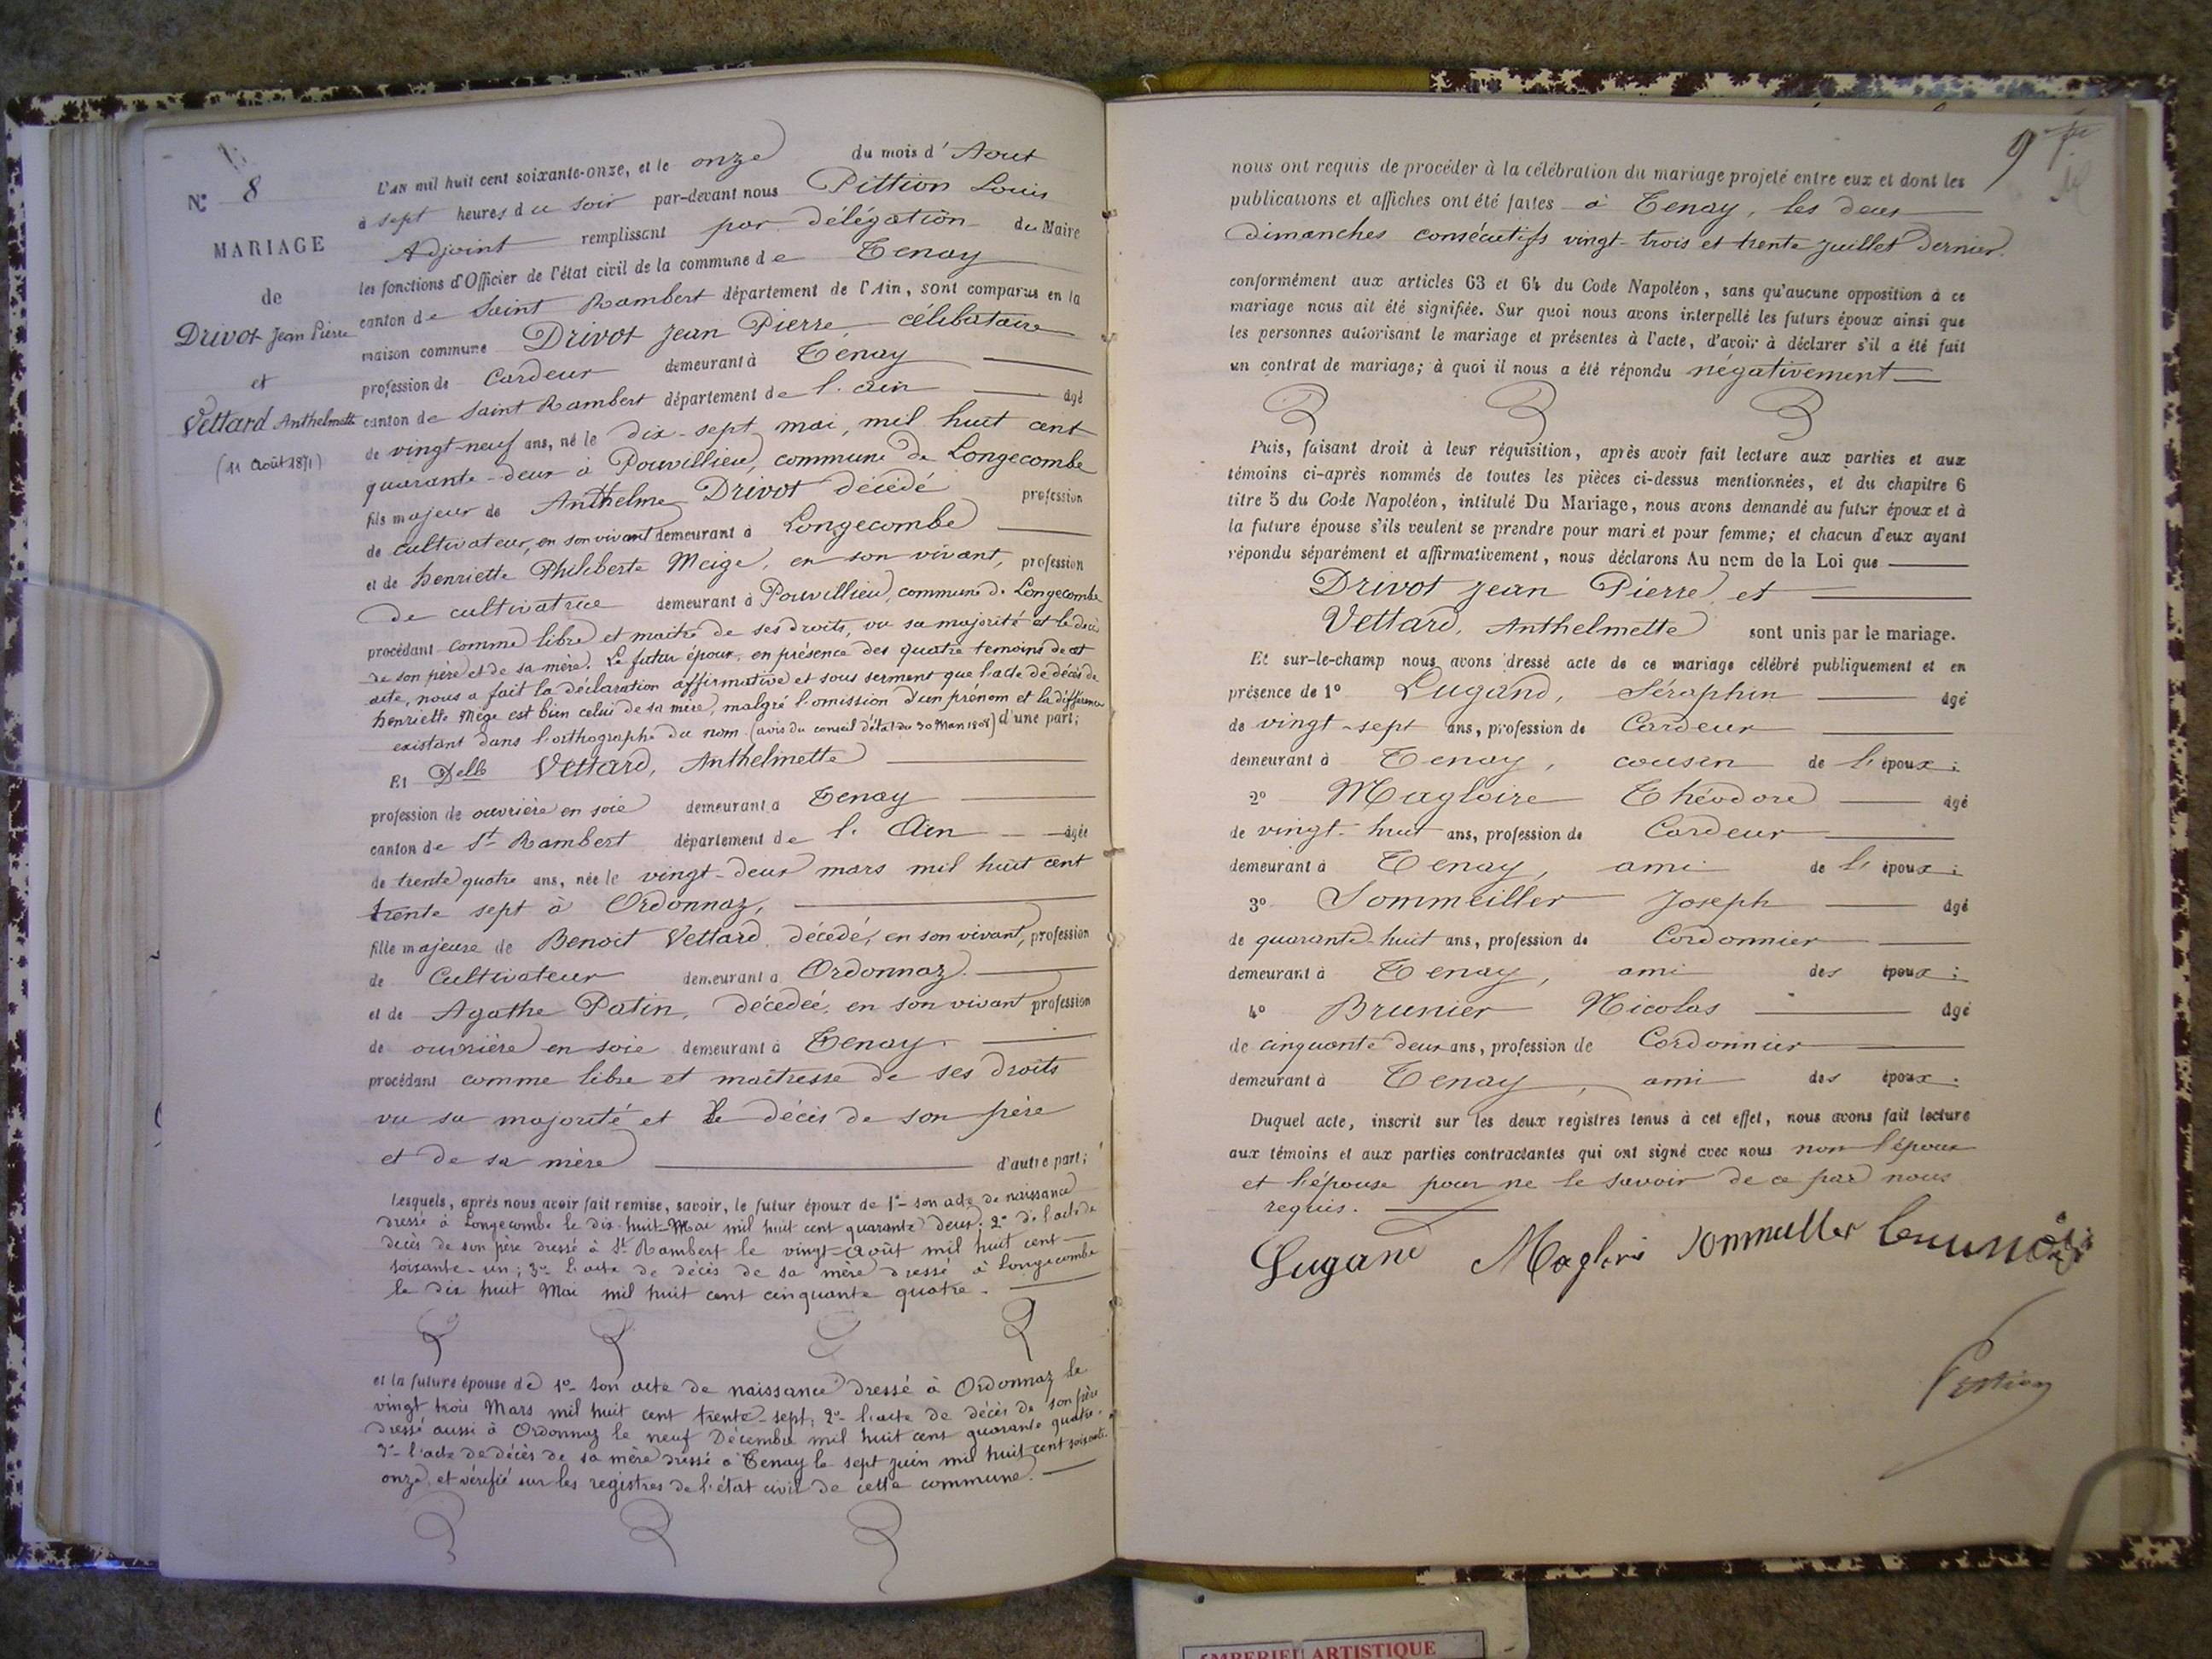 N° 8
MARIAGE
de
Drivot Jean Pierre
et
Vettard Anthelmette
(11 Août 1871)
L'AN mil huit cent soixante-onze, et le onze du mois d'Aout
à sept heures du soir par-devant nous Pittion Louis
Adjoint remplissant par délégation du Maire
les fonctions d'Officier de l'état civil de la commune de Tenay
canton de Saint Rambert département de l'Ain, sont comparus en la
maison commune Drivot Jean Pierre, célibataire
profession de Cardeur demeurant à Tenay
canton de Saint Rambert département de l'ain âgé
de vingt-neuf ans, né le dix-sept mai, mil huit cent
quarante-deux à Pouvillieu, commune de Longecombe
fils majeur de Anthelme Drivot décédé profession
de cultivateur, en son vivant demeurant à Longecombe
et de henriette Philiberte Meige, en son vivant, profession
de cultivatrice demeurant à Pouvillieu, commune de Longecombe
procédant comme libre et maitre de ses droits, vu sa majorité et le décès
de son père et de sa mère. Le futur époux, en présence des quatre temoins de cet
acte, nous a fait la déclaration affirmative et sous serment que l'acte de décès de
henriette Mège est bien celui de sa mère, malgré l'omission d'un prénom et la différence
existant dans l'orthographe du nom. (avis du conseil d'état du 30 Mars 1808) d'une part;
Et Delle Vettard, Anthelmette
profession de ouvrière en soie demeurant a Tenay
canton de St Rambert département de l'Ain âgée
de trente quatre ans, née le vingt-deux mars mil huit cent
trente sept à Ordonnaz,
fille majeure de Benoit Vettard, décédé, en son vivant, profession
de Cultivateur demeurant a Ordonnaz.
et de Agathe Patin, décédée, en son vivant profession
de ouvrière en soie demeurant à Tenay.
procédant comme libre et maîtresse de ses droits
vu sa majorité et le décès de son père
et de sa mère d'autre part;
Lesquels, après nous avoir fait remise, savoir, le futur époux de 1° son acte de naissance
dressé à Longecombe le dix-huit Mai mil huit cent quarante deux; 2° de l'acte de
decès de son père dressé à St Rambert le vingt Août mil huit cent
soixante-un; 3° L'acte de décès de sa mère dressé à Longecombe
le dix huit Mai mil huit cent cinquante quatre.
et la future épouse de 1° son acte de naissance dressé à Ordonnaz le
vingt trois Mars mil huit cent trente-sept; 2° l'acte de décès de son père
dressé aussi à Ordonnaz le neuf Décembre mil huit cent quarante quatre.
3° l'acte de décès de sa mère dressé à Tenay le sept juin mil huit cent soixante
onze, et vérifié sur les registres de l'état civil de cette commune.
9
nous ont requis de procéder à la célébration du mariage projeté entre eux et dont les
publications et affiches ont été faites à Tenay, les deux
dimanches consécutifs vingt-trois et trente juillet dernier.
conformément aux articles 63 et 64 du Code Napoléon, sans qu'aucune opposition à ce
mariage nous ait été signifiée. Sur quoi nous avons interpellé les futurs époux ainsi que
les personnes autorisant le mariage et présentes à l'acte, d'avoir à déclarer s'il a été fait
un contrat de mariage; à quoi il nous a été répondu négativement
Puis, faisant droit à leur réquisition, après avoir fait lecture aux parties et aux
témoins ci-après nommés de toutes les pièces ci-dessus mentionnées, et du chapitre 6
titre 5 du Code Napoléon, intitulé Du Mariage, nous avons demandé au futur époux et à
la future épouse s'ils veulent se prendre pour mari et pour femme; et chacun d'eux ayant
répondu séparément et affirmativement, nous déclarons Au nom de la Loi que
Drivot Jean Pierre, et
Vettard, Anthelmette sont unis par le mariage.
Et sur-le-champ nous avons dressé acte de ce mariage célébré publiquement et en
présence de 1° Lugand, Séraphin âgé
de vingt-sept ans, profession de Cardeur
demeurant à Tenay, cousin de l'époux;
2° Magloire Théodore âgé
de vingt-huit ans, profession de Cardeur
demeurant à Tenay, ami de l'époux;
3° Sommeiller Joseph âgé
de quarante-huit ans, profession de Cordonnier
demeurant à Tenay, ami des époux;
4° Brunier Nicolas âgé
de cinquante deux ans, profession de Cordonnier
demeurant à Tenay, ami des époux.
Duquel acte, inscrit sur les deux registres tenus à cet effet, nous avons fait lecture
aux témoins et aux parties contractantes qui ont signé avec nous non l'époux
et l'épouse pour ne le savoir de ce par nous
requis.
Lugand Magloire Sommeller
Pittion
AMBERIEU ARTISTIQUE